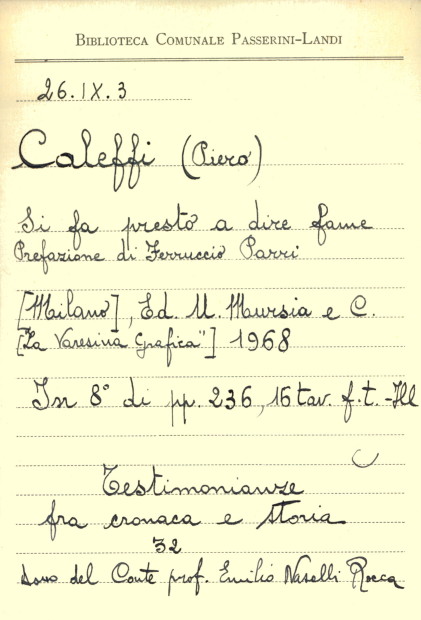 BIBLIOTECA COMUNALE PASSERINI-LANDI
26.IX.3
Caleffi (Piero)
Si fa presto a dire fame
Prefazione di Ferruccio Parri
[Milano], Ed. U. Mursia e C.
["La Varesina Grafica"] 1968
In 8° di pp. 236, 16 tav. f.t. - Ill
Testimonianze
fra cronaca e storia
32
Dono del Conte prof. Emilio Nasalli Rocca